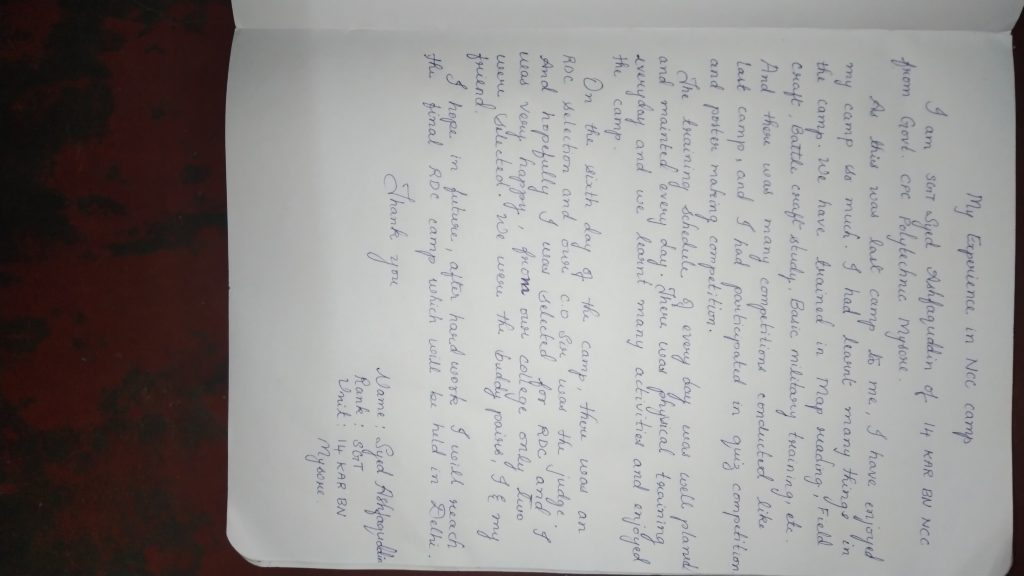 My Experience in Ncc camp
I am SGT Syed Ashfaquddin of 14 KAR BN NCC
from Govt. CPC Polytechnic Mysore.
As this was last camp to me, I have enjoyed
my camp so much. I had learnt many things in
the camp. We have trained in Map reading, Field
craft, Battle craft study. Basic military training, etc.
And there was many competitions conducted like
last camp, and I had participated in quiz competition
and poster making competition.
The training schedule of every day was well pland
and mainted every day. There was physical training
everyday and we learnt many activities and enjoyed
the camp.
On the sixth day of the camp, there was an
RDC selection and our C.O Sir was the judge.
And hopefully I was selected for RDC and I
was very happy, from our college only two
were selected. We were the buddy pairs, I & my
friend.
I hope in future, after hardwork I will reach
the final RDC camp which will be held in Delhi.
Thank you
Name : Syed Ashfaquddin
Rank : SGT
Unit : 14 KAR BN
Mysore.